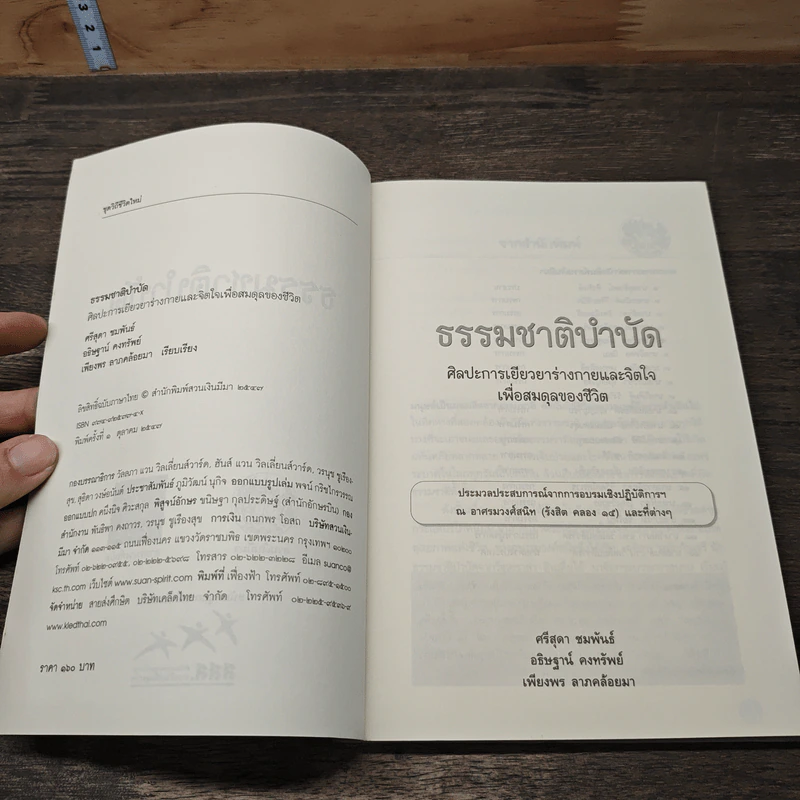 3
2
1
ชุดวิถีชีวิตใหม่
ธรรมชาติบำบัด
ศิลปะการเยียวยาร่างกายและจิตใจเพื่อสมดุลของชีวิต
ศรีสุดา ชมพันธ์
อธิษฐาน์ คงทรัพย์
เพียงพร ลาภคล้อยมา เรียบเรียง
ลิขสิทธิ์ฉบับภาษาไทย © สำนักพิมพ์สวนเงินมีมา ๒๕๔๗
ISBN
พิมพ์ครั้งที่ ๑ ตุลาคม ๒๕๔๗
กองบรรณาธิการ วัลลภา แวน วิลเลี่ยนส์วาร์ด, ฮันส์ แวน วิลเลี่ยนส์วาร์ด, วรนุช ชูเรือง
สุข, สุธิดา วงษ์อนันต์ ประชาสัมพันธ์ ภูมิวัฒน์ นุกิจ ออกแบบรูปเล่ม พจน์ กริชไกรวรรณ
ออกแบบปก คนึงนิจ ศิวะสกุล พิสูจน์อักษร ขนิษฐา กุลประดิษฐ์ (สำนักอักษรบิน) กอง
สำนักงาน พันธิพา คงถาวร, วรนุช ชูเรืองสุข การเงิน กนกพร โอสถ บริษัทสวนเงิน
มีมา จำกัด ๑๑๓-๑๑๕ ถนนเฟื่องนคร แขวงวัดราชบพิธ เขตพระนคร กรุงเทพฯ ๑๐๒๐๐
โทรศัพท์ ๐๒-๒๒๕-๐๙๕๕, ๐๒-๒๒๒-๕๖๙๘ โทรสาร ๐๒-๖๒๒-๓๒๒๘ อีเมล suanco@
ksc.th.com เว็บไซต์ www.suan-spirit.com พิมพ์ที่ เฟื่องฟ้า โทรศัพท์ ๐๒-๘๙๕-๑๕๐๐
จัดจำหน่าย สายส่งศึกษิต บริษัทเคล็ดไทย จำกัด โทรศัพท์ ๐๒-๒๒๕-๙๕๓๖-๙
www.kledthai.com
ราคา ๑๖๐ บาท
ธรรมชาติบำบัด
ศิลปะการเยียวยาร่างกายและจิตใจ
เพื่อสมดุลของชีวิต
ประมวลประสบการณ์จากการอบรมเชิงปฏิบัติการฯ
ณ อาศรมวงศ์สนิท (รังสิต คลอง ๑๕) และที่ต่างๆ
ศรีสุดา ชมพันธ์
อธิษฐาน์ คงทรัพย์
เพียงพร ลาภคล้อยมา